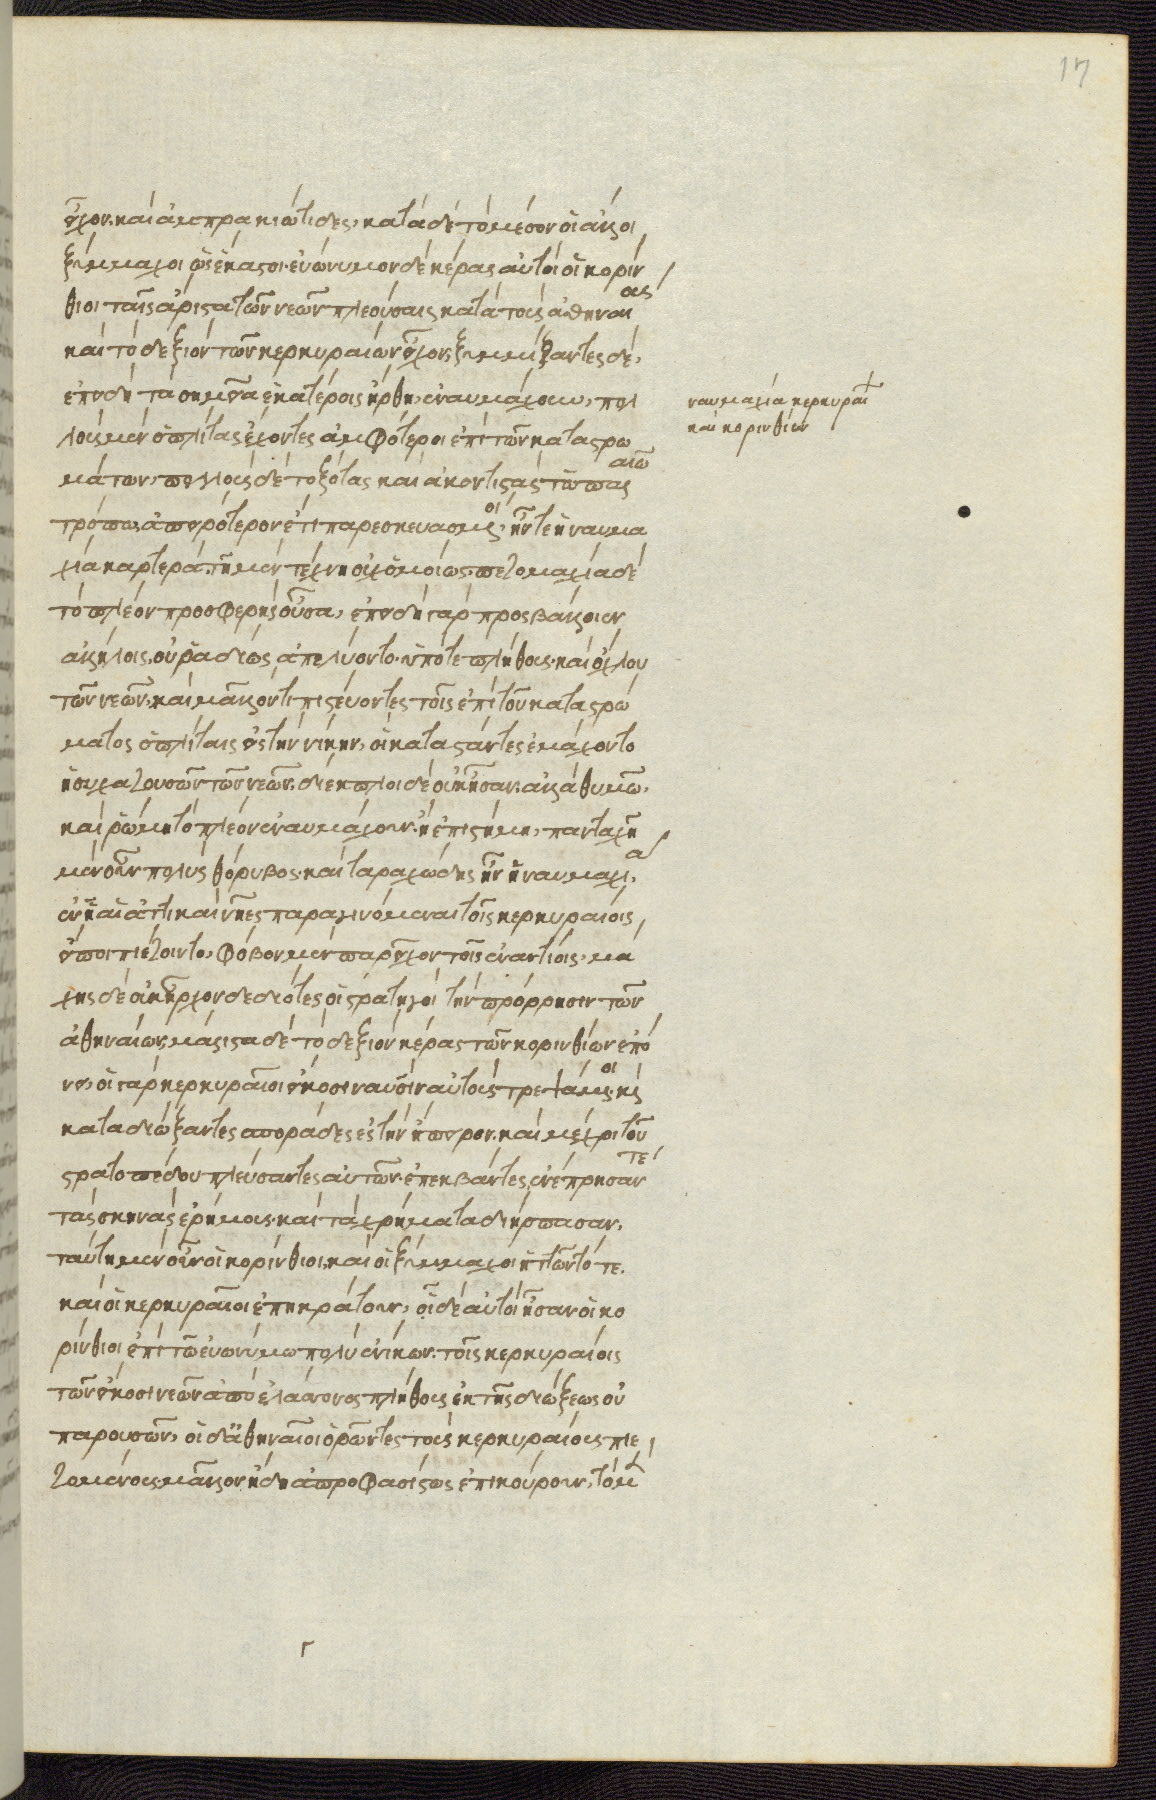 17
εἶχον. καὶ ἀμπρακιώτιδες, κατὰ δὲ τὸ μέσον οἱ ἄλλοι
ξύμμαχοι ὡς ἕκαστοι. εὐώνυμον δὲ κέρας αὐτοὶ οἱ κορίν
θιοι ταῖς ἄριστα τῶν νεῶν πλεούσαις κατὰ τοὺς ἀθηναίους
καὶ τὸ δεξιὸν τῶν κερκυραίων εἶχον, ξυμμίξαντες δὲ,
ἐπειδὴ τὰ σημεῖα ἑκατέροις ἤρθη, ἐναυμάχουν, πολ
λοὺς μὲν ὁπλίτας ἔχοντες ἀμφότεροι ἐπὶ τῶν καταστρω
μάτων, πολλοὺς δὲ τοξότας καὶ ἀκοντιστάς τῷ παλαιῷ
τρόπῳ ἀπειρότερον ἔτι παρεσκευασμένοι, ἦν τε ἡ ναυμα
χία καρτερὰ. τῇ μὲν τέχνῃ οὐχ ὁμοίως. πεζομαχίᾳ δὲ
τὸ πλέον προσφερὴς οὖσα, ἐπειδὴ γὰρ προσβάλλοιεν
ἀλλήλοις, οὐ ῥᾳδίως ἀπελύοντο. ὑπό τε πλήθους. καὶ ὄχλου
τῶν νεῶν, καὶ μᾶλλόν τι πιστεύοντες τοῖς ἐπὶ τοῦ καταστρώ
ματος ὁπλίταις ἐς τὴν νίκην, οἳ καταστάντες ἐμάχοντο
ἡσυχαζουσῶν τῶν νεῶν. διέκπλοι δὲ οὐκ ἦσαν. ἀλλὰ θυμῷ,
καὶ ῥώμῃ τὸ πλέον ἐναυμάχουν. ἢ ἐπιστήμῃ, πανταχῇ
μὲν οὖν πολὺς θόρυβος. καὶ ταραχώδης ἦν ἡ ναυμαχία,
ἐν ᾗ αἱ ἀττικαὶ νῆες παραγινόμεναι τοῖς κερκυραίοις,
εἴ ποι πιέζοιντο, φόβον μὲν παρεῖχον τοῖς ἐναντίοις, μά
χης δὲ οὐκ ἦρχον δεδιότες οἱ στρατηγοὶ τὴν πρόρρησιν τῶν
ἀθηναίων, μάλιστα δὲ τὸ δεξιὸν κέρας τῶν κορινθίων ἐπό
νει, οἱ γὰρ κερκυραῖοι εἴκοσι ναυσὶν αὐτοὺς τρεψάμενοι. καὶ
καταδιώξαντες σποράδες ἐς τὴν ἤπειρον, καὶ μέχρι τοῦ
στρατοπέδου πλεύσαντες αὐτῶν. ἐπεκβάντες, ἐνέπρησάν τε
τὰς σκηνὰς ἐρήμους. καὶ τὰ χρήματα διήρπασαν,
ταύτῃ μὲν οὖν οἱ κορίνθιοι, καὶ οἱ ξύμμαχοι ἡττῶντό τε.
καὶ οἱ κερκυραῖοι ἐπεκράτουν, οἷ δὲ αὐτοὶ ἦσαν οἱ κο
ρίνθιοι ἐπὶ τῷ εὐωνύμῳ πολὺ ἐνίκων. τοῖς κερκυραίοις
τῶν εἴκοσι νεῶν ἀπὸ ἐλάσσονος πλήθους ἐκ τῆς διώξεως οὐ
παρουσῶν, οἱ δ᾽ ἀθηναῖοι ὁρῶντες τοὺς κερκυραίους πιε
ζομένους, μᾶλλον ἤδη ἀπροφασίστως ἐπικούρουν, τὸ μὲν
ναυμαχία κερκυραίων
καὶ κορινθίων
Γ